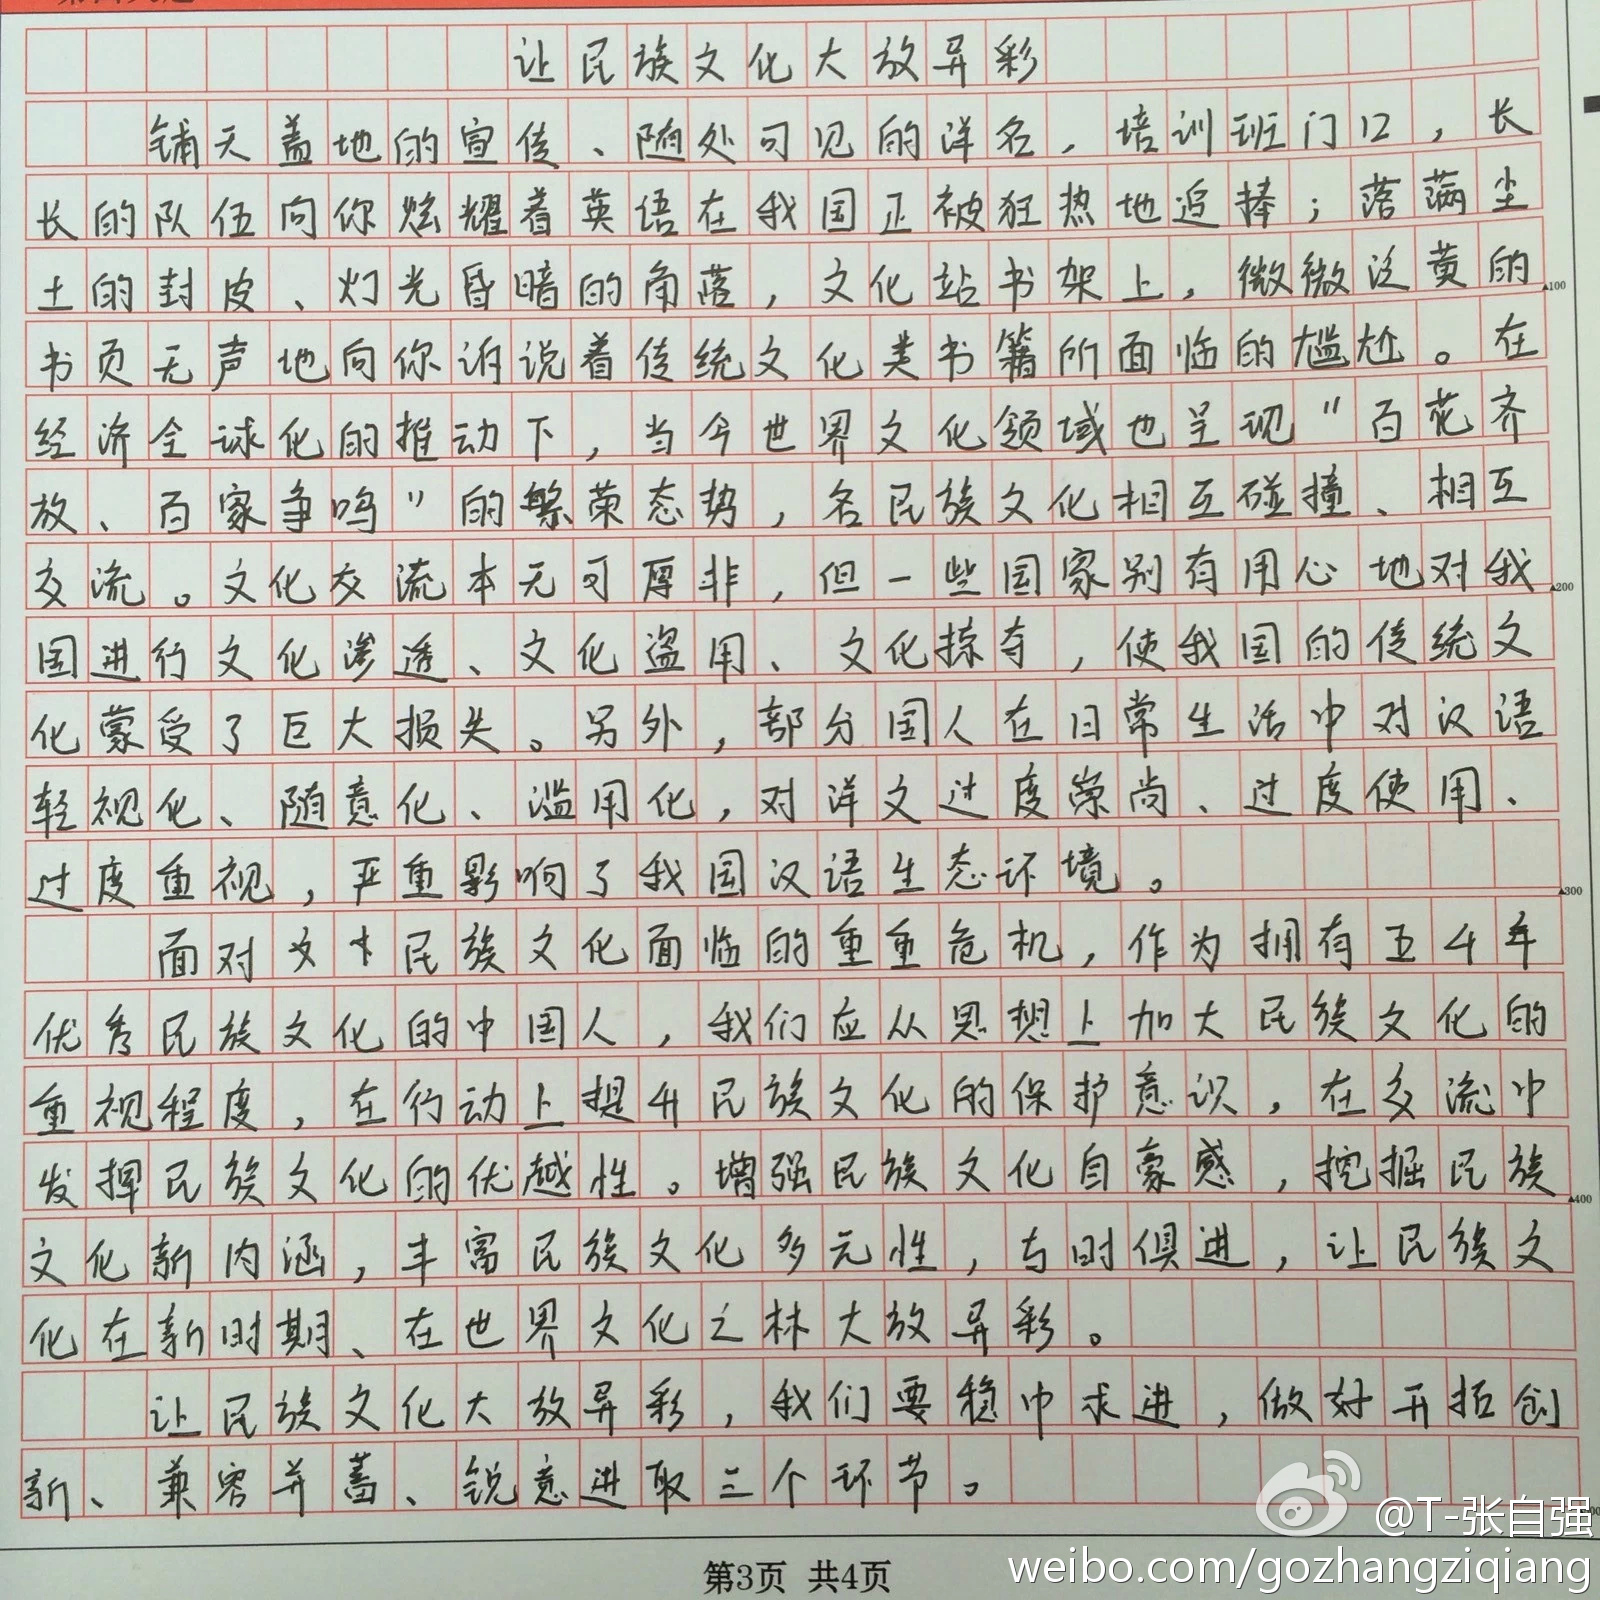 让民族文化大放异彩
铺天盖地的宣传、随处可见的洋名，培训班门口，长
长的队伍向你炫耀着英语在我国正被狂热地追捧；落满尘
土的封皮、灯光昏暗的角落，文化站书架上，微微泛黄的
书页无声地向你诉说着传统文化类书籍所面临的尴尬。在
经济全球化的推动下，当今世界文化领域也呈现"百花齐
放、百家争鸣"的繁荣态势，各民族文化相互碰撞、相互
交流。文化交流本无可厚非，但一些国家别有用心地对我
国进行文化渗透、文化盗用、文化掠夺，使我国的传统文
化蒙受了巨大损失。另外，部分国人在日常生活中对汉语
轻视化、随意化、滥用化，对洋文过度崇尚、过度使用、
过度重视，严重影响了我国汉语生态环境。
面对民族文化面临的重重危机，作为拥有五千年
优秀民族文化的中国人，我们应从思想上加大民族文化的
重视程度，在行动上提升民族文化的保护意识，在交流中
发挥民族文化的优越性。增强民族文化自豪感，挖掘民族
文化新内涵，丰富民族文化多元性，与时俱进，让民族文
化在新时期、在世界文化之林大放异彩。
让民族文化大放异彩，我们要稳中求进，做好开拓创
新、兼容并蓄、锐意进取三个环节。
100
200
300
400
第3页 共4页
@T-张自强
weibo.com/gozhangziqiang